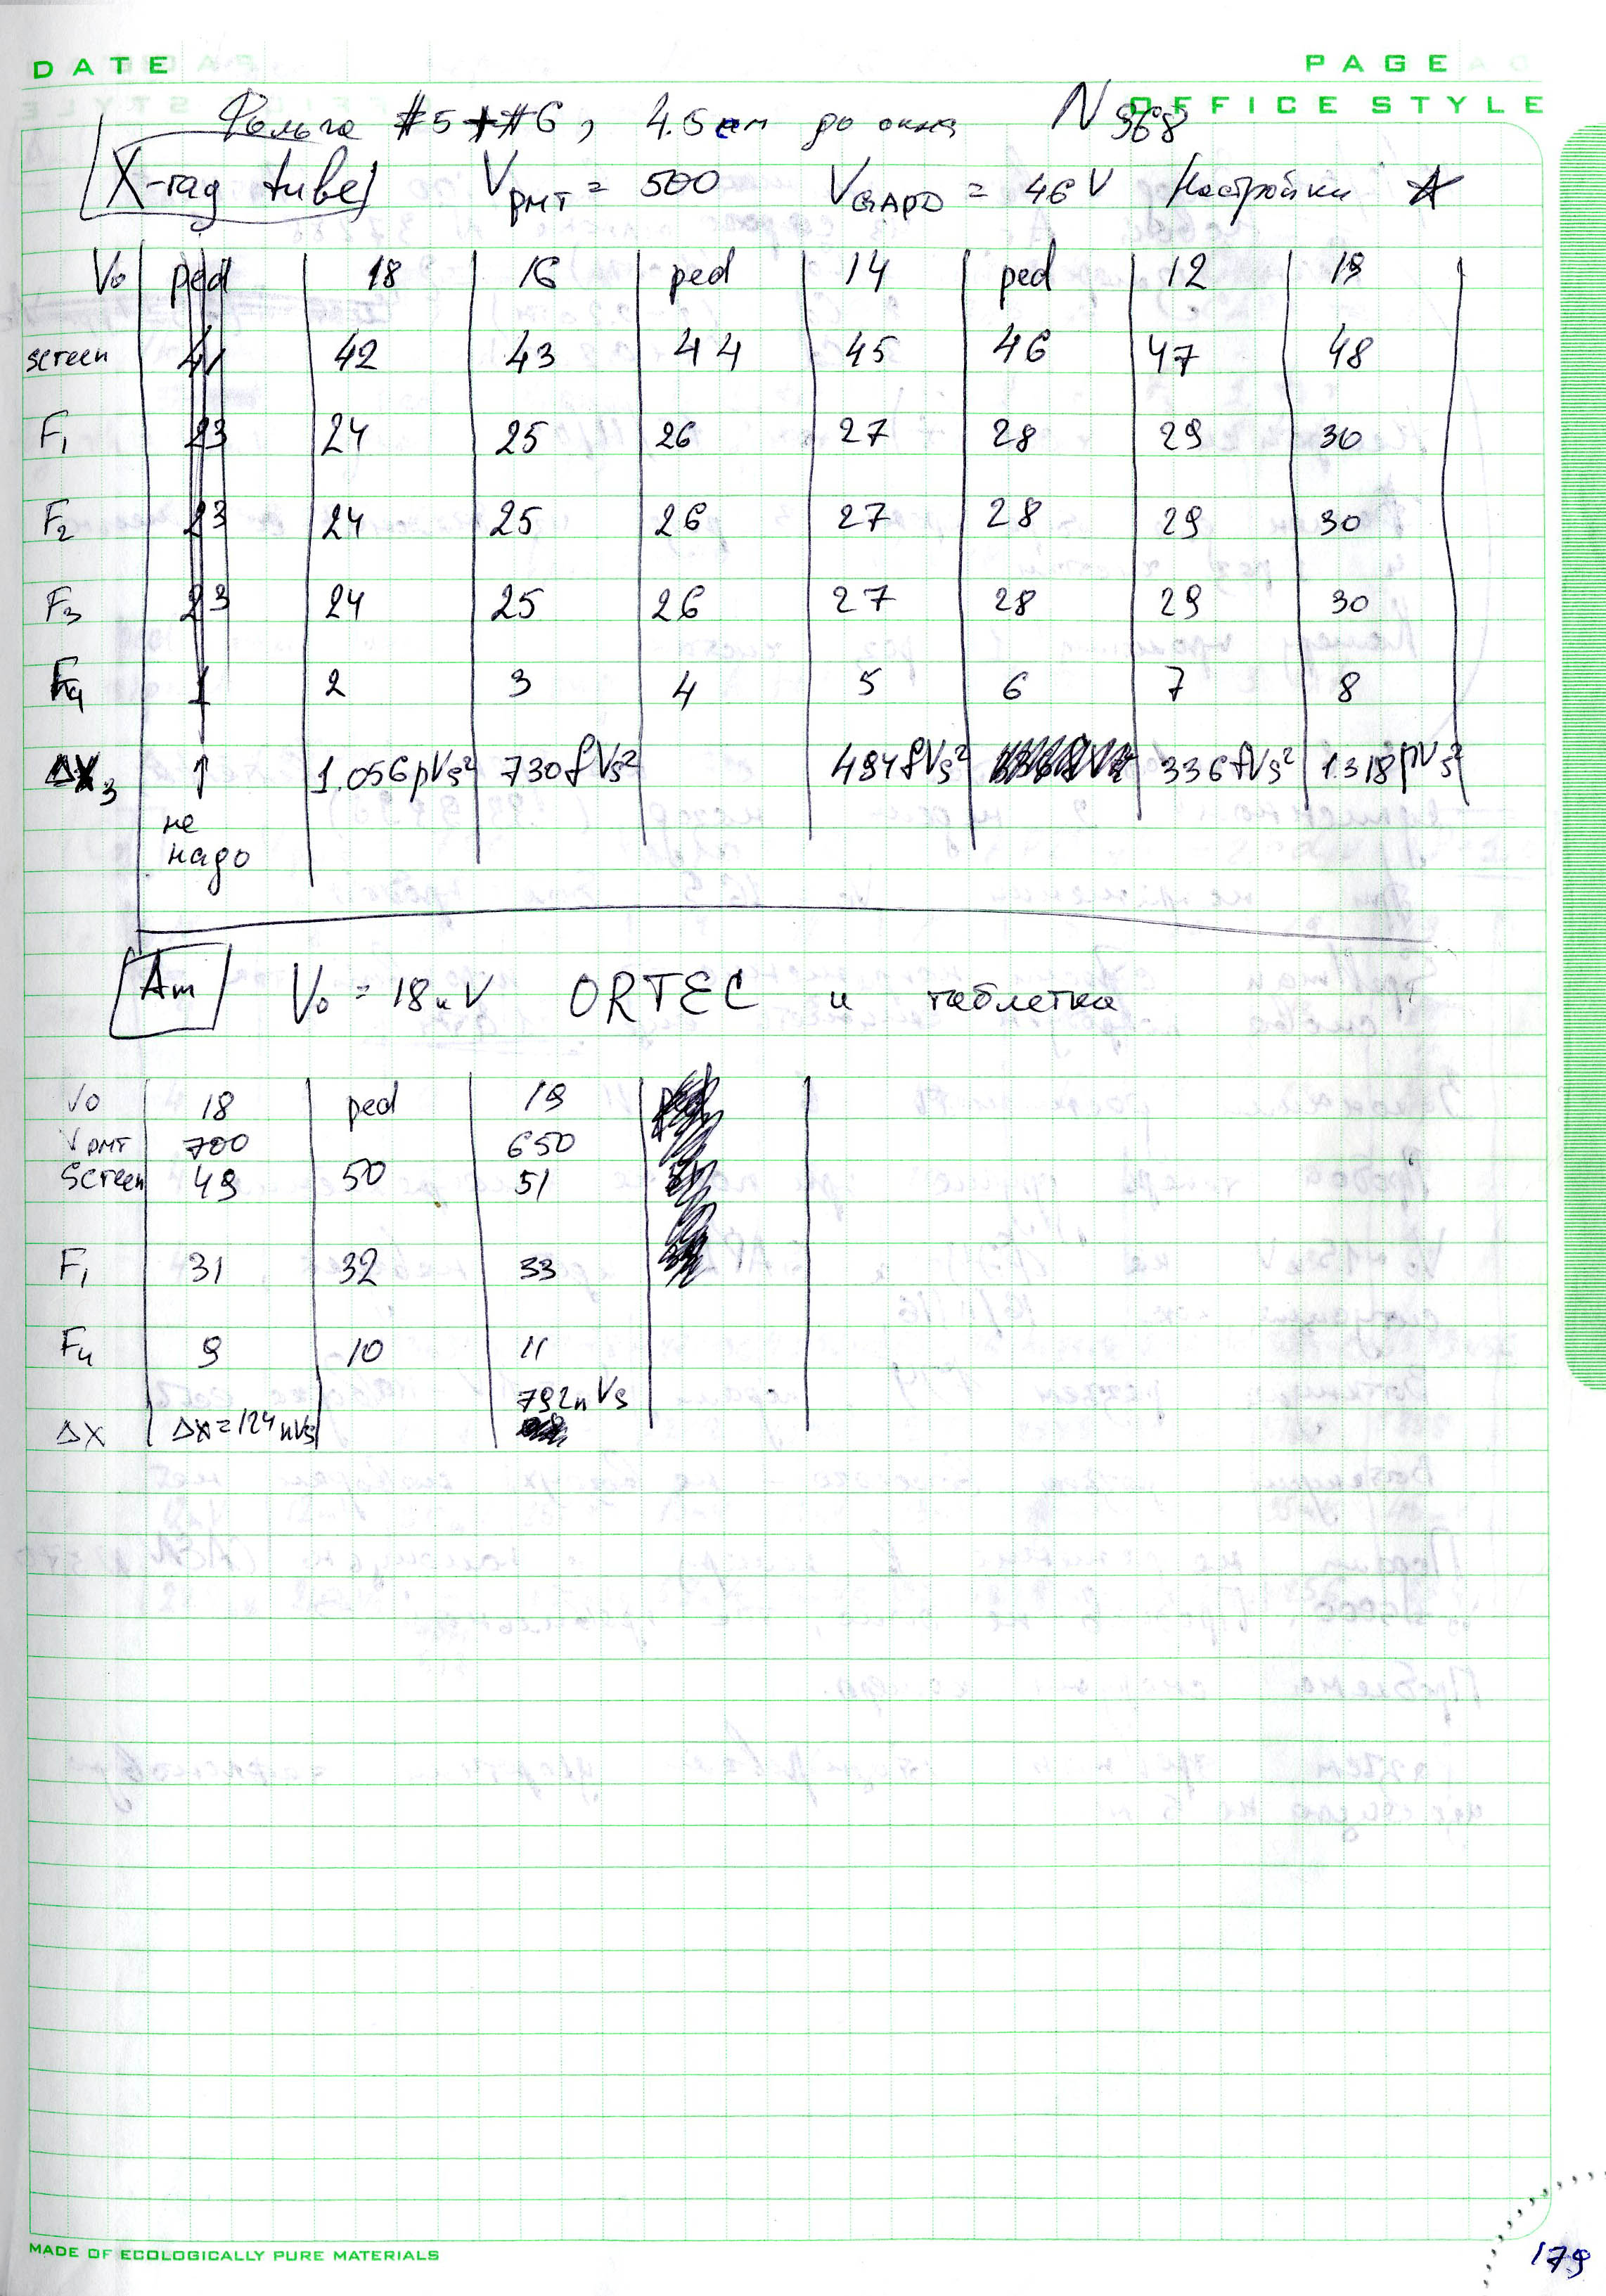 DATE
PAGE
OFFICE STYLE
Фольга #5+#6, 4.5 cm до окна N 368
X-ray tube V PMT = 500 V GAPD = 46 V Настройки A
V0 ped 18 16 ped 14 ped 12 19
screen 41 42 43 44 45 46 47 48
F1 23 24 25 26 27 28 29 30
F2 23 24 25 26 27 28 29 30
F3 23 24 25 26 27 28 29 30
F4 1 2 3 4 5 6 7 8
ΔX3 ↑ 1.056pVs² 730fVs² 494fVs² 336fVs² 1.318pVs²
не
надо
Am V0 = 18 kV ORTEC и таблетка
V0 18 ped 19
V PMT 700 650
Screen 49 50 51
F1 31 32 33
F4 9 10 11
792nVs
ΔX ΔX=124nVs
MADE OF ECOLOGICALLY PURE MATERIALS
179